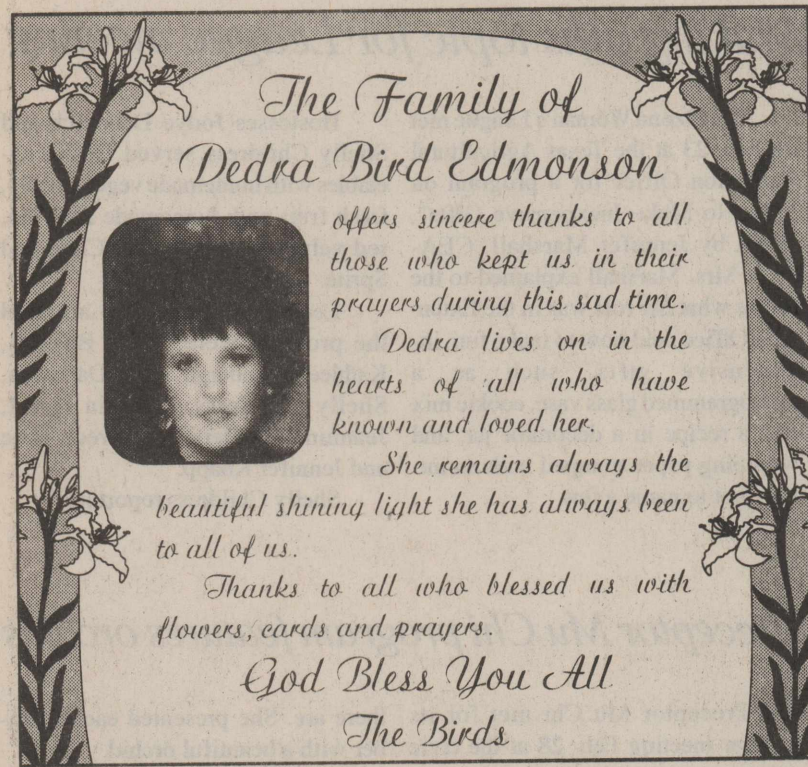 The Family of
Dedra Bird Edmonson
offers sincere thanks to all
those who kept us in their
prayers during this sad time.
Dedra lives on in the
hearts of all who have
known and loved her.
She remains always the
beautiful shining light she has always been
to all of us.
Thanks to all who blessed us with
flowers, cards and prayers.
God Bless You All
The Birds